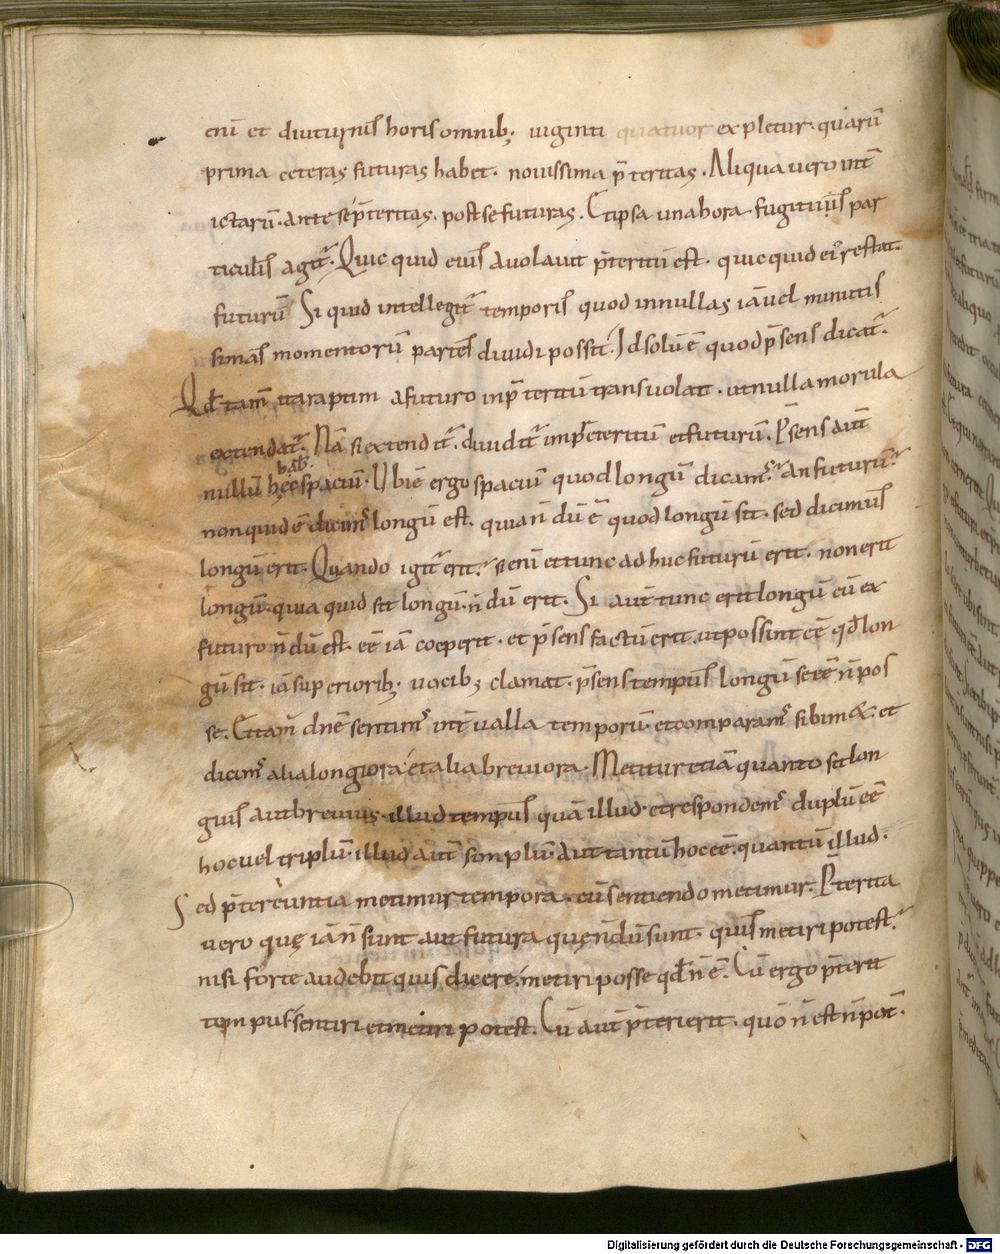 enī et diuturnis horis omnib; uiginti quatuor expletur. quarū
prima ceteras futuras habet. nouissima p̄teritas. Aliqua uero int̄
iectarū. ante se p̄teritas. post se futuras. Et ipsa una hora fugitiuis par
ticulis agit̄. Quic quid eius auolauit p̄teritū est. quicquid ei restat.
futurū. Si quid intellegit̄ temporis quod in nullas iā uel minutis
simas momentorū partes diuidi possit. Id solū ē quod p̄sens dicat̄.
Qd̄ tam̄ ita raptim a futuro in p̄teritū transuolat. ut nulla morula
extendat̄. Nā si extendit̄. diuidit̄ in p̄teritū et futurū. P̄sens aut̄
nullū hab&
spaciū. Vbi ē ergo spaciū quod longū dicam᷒. An futurū.
non quidē dicim᷒ longū est. quia n̄dū ē quod longū sit. sed dicimus
longū erit. Quando igit̄ erit. si enī et tunc adhuc futurū erit. non erit
longū. quia quid sit longū. n̄dū erit. Si aut̄ tunc erit longū cū ex
futuro n̄dū est. eē iā coeperit. et p̄sens factū erit. ut possint eē qd̄ lon
gū sit. iā superiorib; uocib; clamat. p̄sens tempus longū se eē n̄ pos
se. Et tam̄ dn̄e sentim᷒ int̄ualla temporū. et comparam᷒ sibim&. et
dicim᷒ alia longiora et alia breuiora. Metitur etiā quanto sit lon
gius aut breuius illud tempus quā illud. et respondem᷒ duplū eē
hoc uel triplū. illud aut̄ simplū. aut tantū hoc eē. quantū illud.
Sed p̄tereuntia metimur tempora. cū sentiendo metimur. P̄terita
uero quę iā n̄ sunt aut futura quę n̄dū sunt. quis metiri potest.
nisi forte audebit quis dicere. metiri posse qd̄ n̄ ē. Cū ergo p̄terit
tempus. sentiri et metiri potest. Cū aut̄ p̄terierit. quō n̄ est n̄ pot̄.